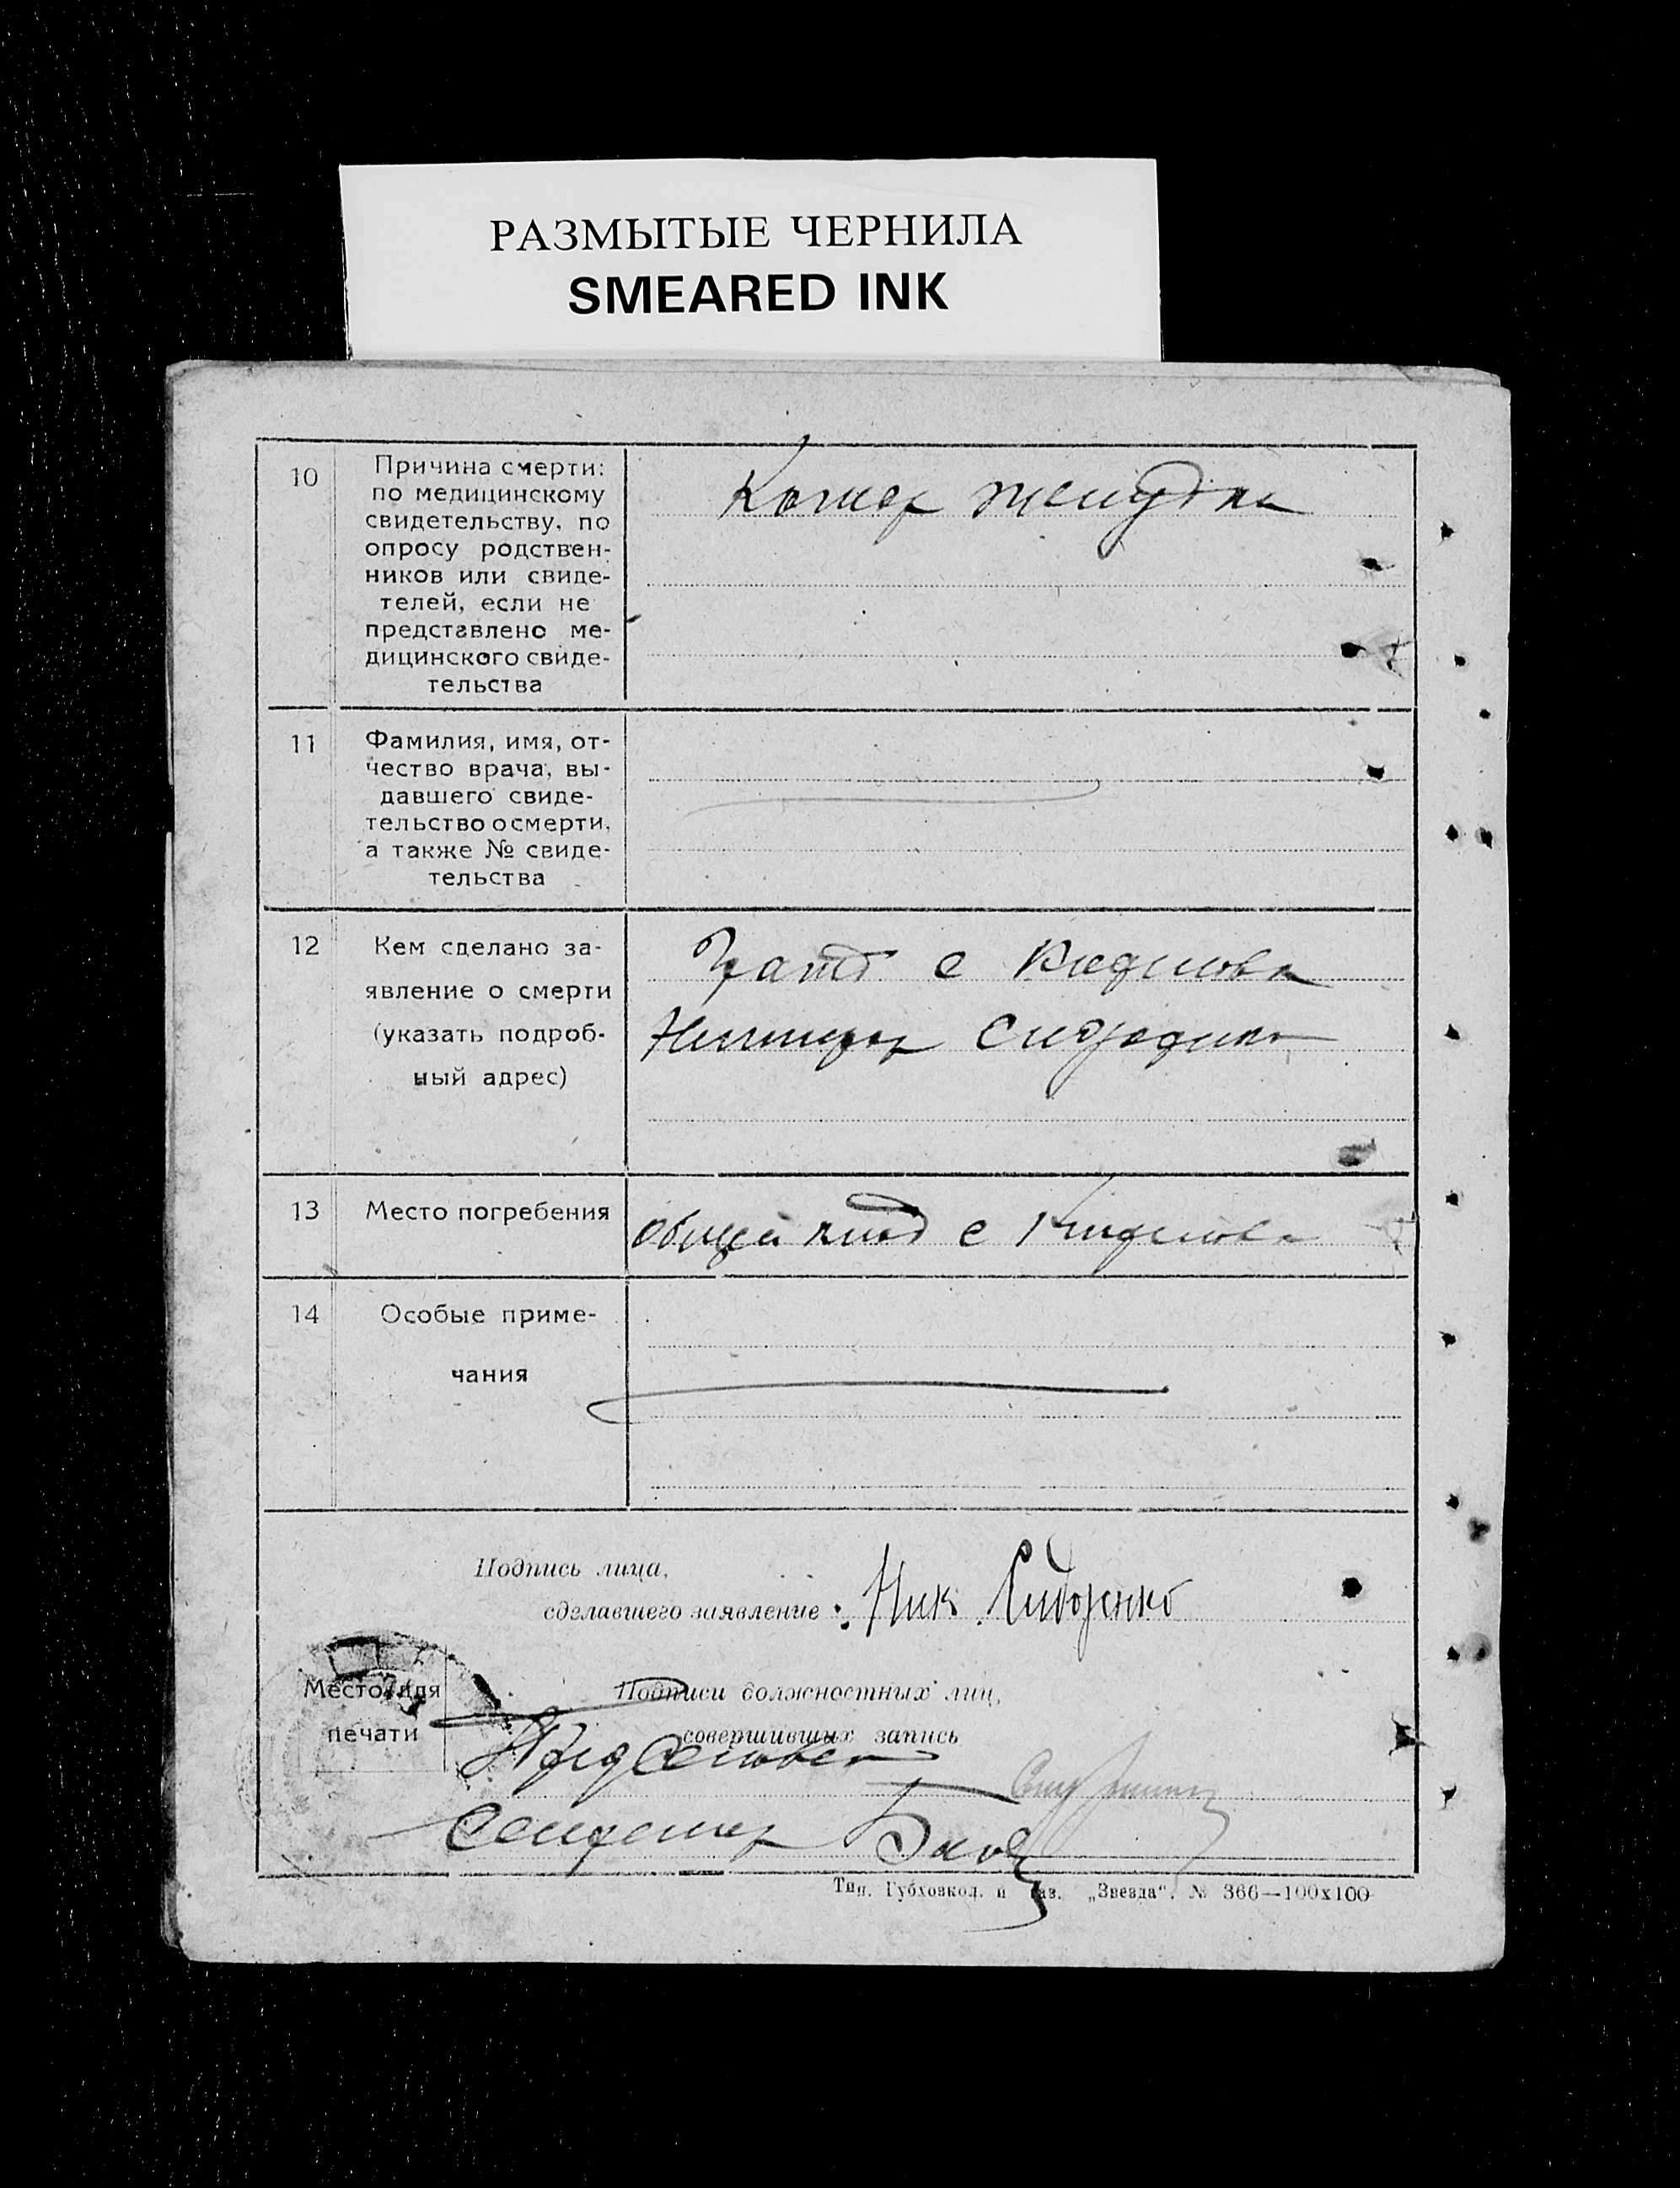 РАЗМЫТЫЕ ЧЕРНИЛА
SMEARED INK
10
Причина смерти:
по медицинскому
свидетельству, по
опросу родствен-
ников или свиде-
телей, если не
представлено ме-
дицинского свиде-
тельства
желудка
11
Фамилия, имя, от-
чество врача, вы-
давшего свиде-
тельство о смерти,
а также № свиде-
тельства
12
Кем сделано за-
явление о смерти
(указать подроб-
ный адрес)
с
13
Место погребения
общей клад с
14
Особые приме-
чания
Подпись лица,
сделавшего заявление
Ник Сидоренко
Место для
печати
Подписи должностных лиц,
совершивших запись
Пред Сельсовета
Секретарь
Тип. Губховкол. и газ. „Звезда“. № 366—100х100